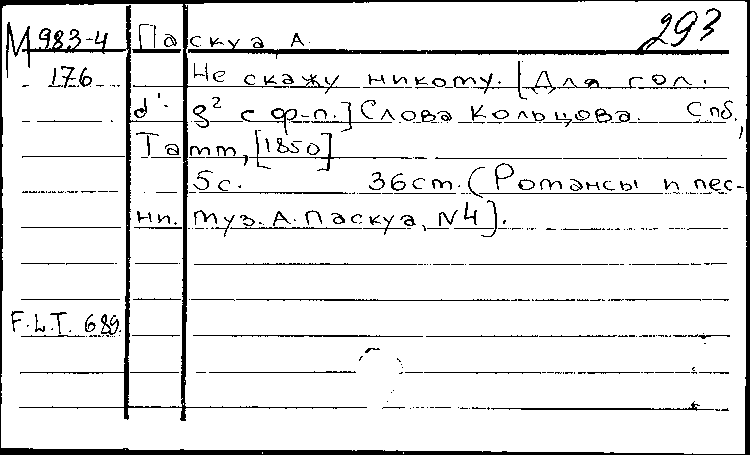 293
М 983-4 Паскуа, А.
176 Не скажу никому. [Для гол.
d'. g² с ф-п.] Слова Кольцова. Спб.,
Тамм, [1850]
5с. 36cm. (Романсы и пес-
ни. муз. А. Паскуа, N4).
F.L.T. 689.